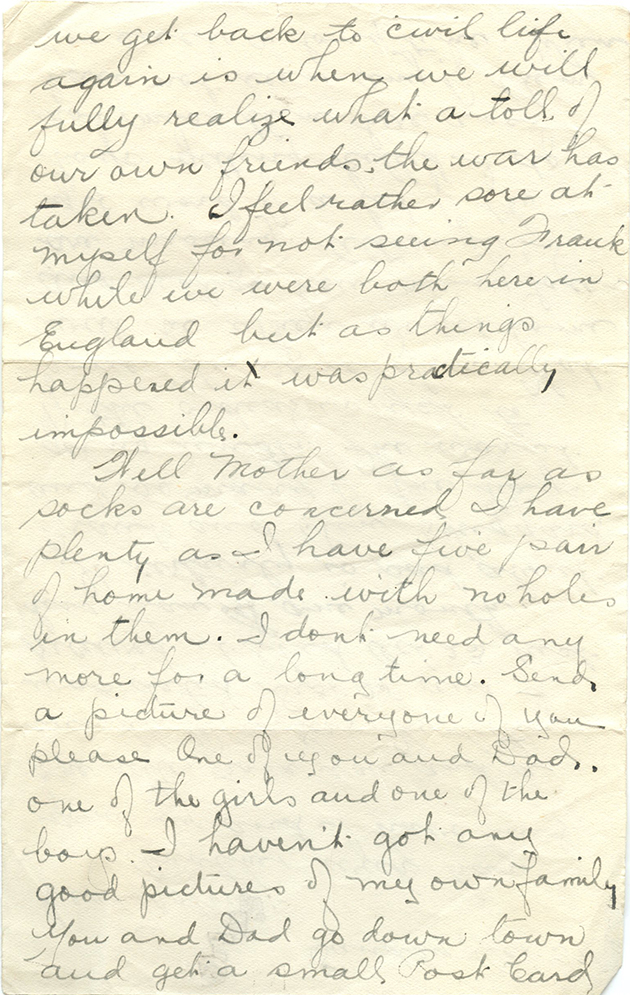 we get back to civil life
again is when we will
fully realize what a toll of
our own friends, the war has
taken. I feel rather sore at
myself for not seeing Frank
while we were both here in
England but as things
happened it was practically
impossible.
Well Mother as far as
socks are concerned I have
plenty as I have five pair
of home made with no holes
in them. I dont need any
more for a long time. Send
a picture of everyone of you
please One of you and Dad.
one of the girls and one of the
boys. I haven't got any
good pictures of my own family
You and Dad go down town
and get a small Post Card